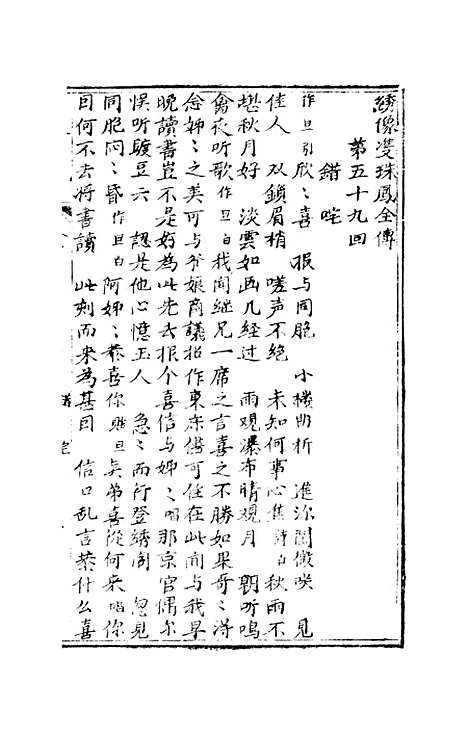 綉像雙珠鳳全傳
第五十九回
錯咤
作旦引欣〻喜 报与同胞 小楼曲折 進深闺微咲 見
佳人 双鎖眉梢 嗟声不絶 未知何事心焦詩白秋雨不
堪秋月好 淡雲如画几经过 雨观瀑布晴观月 朝听鳴
禽夜听歌作旦白我闻继兄一席之言喜之不勝如果哥〻得
念姊〻之美可与爷娘商議招作東床儘可住在此间与我早
晚讀書豈不是好為此先去报个喜信与姊〻唱那京官偶尔
悮听駿豆六 認是他心憶玉人 急〻而行登綉阁 忽見
同胞闷〻昏作旦白阿姊〻恭喜你貼旦吴弟喜從何来唱你
目何不去将書讀 此刻而来為甚因 信口乱言恭什么喜